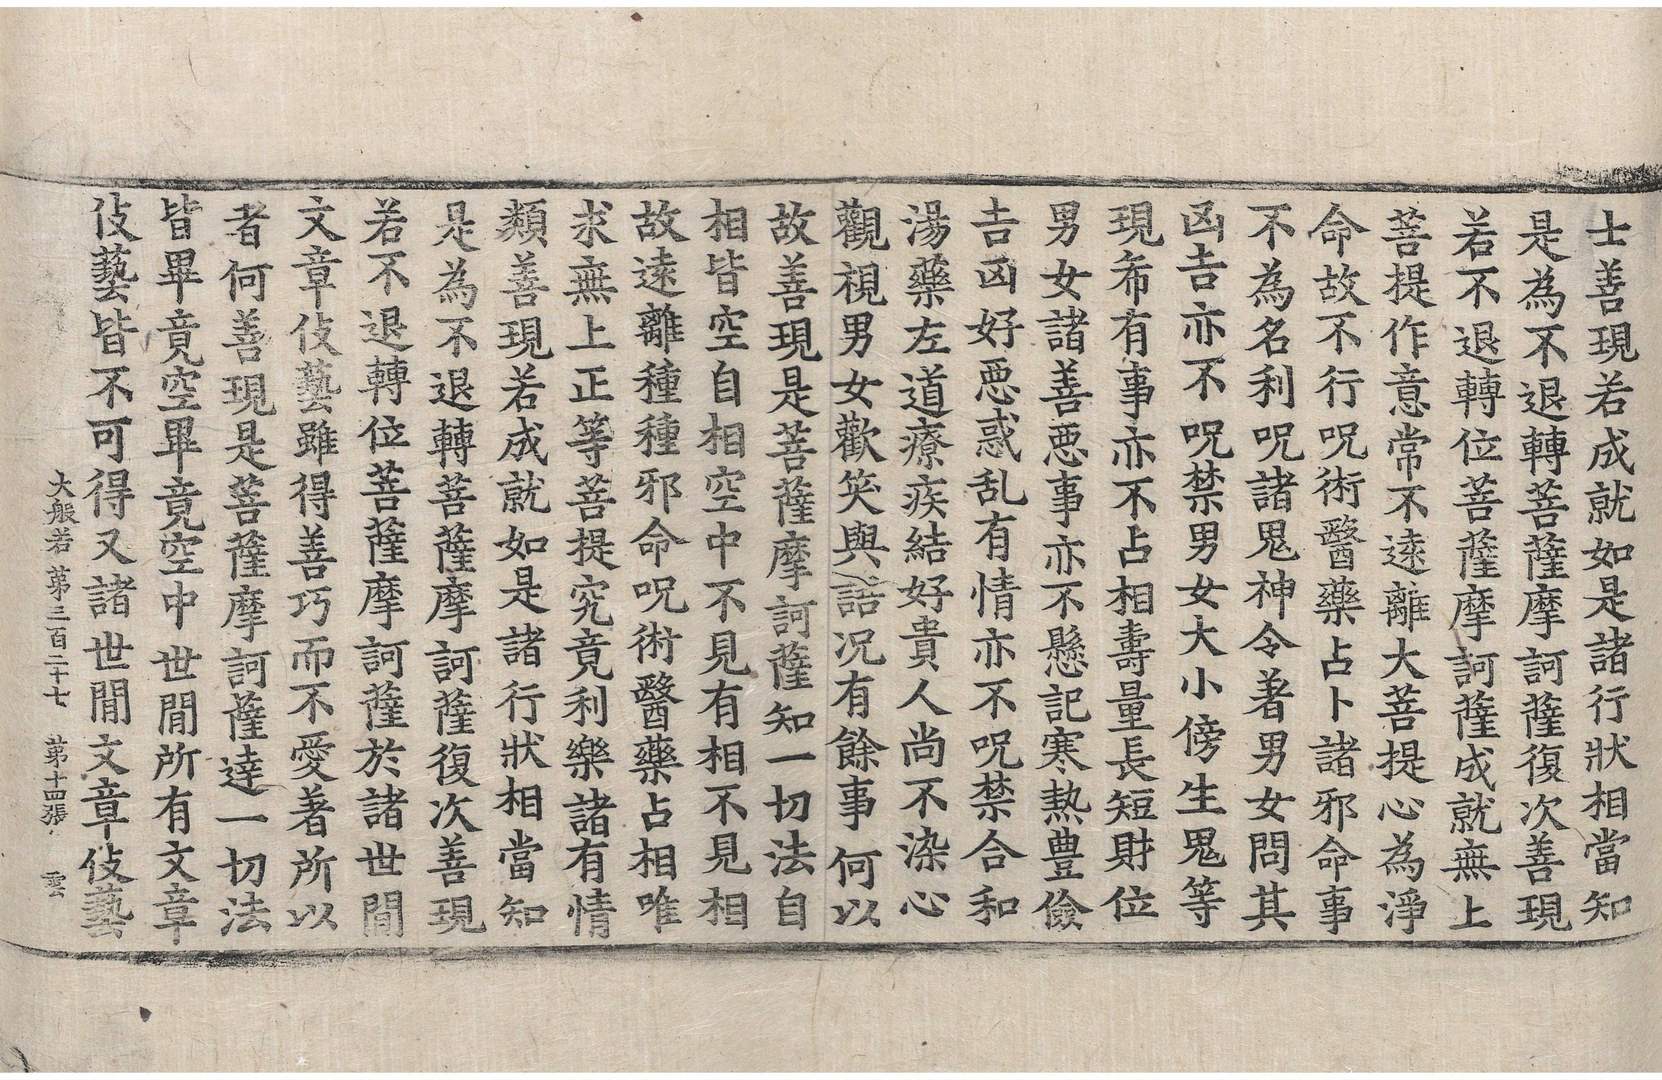 士善現若成就如是諸行狀相當知
是為不退轉菩薩摩訶薩復次善現
若不退轉位菩薩摩訶薩成就無上
菩提作意常不遠離大菩提心為淨
命故不行呪術醫藥占卜諸邪命事
不為名利呪諸鬼神令著男女問其
凶吉亦不呪禁男女大小傍生鬼等
現布有事亦不占相壽量長短財位
男女諸善惡事亦不懸記寒熱豊儉
吉凶好惡惑乱有情亦不呪禁合和
湯藥左道療疾結好貴人尚不染心
觀視男女歡笑與語況有餘事何以
故善現是菩薩摩訶薩知一切法自
相皆空自相空中不見有相不見相
故遠離種種邪命呪術醫藥占相唯
求無上正等菩提究竟利樂諸有情
類善現若成就如是諸行狀相當知
是為不退轉菩薩摩訶薩復次善現
若不退轉位菩薩摩訶薩於諸世間
文章伎藝雖得善巧而不愛著所以
者何善現是菩薩摩訶薩達一切法
皆畢竟空畢竟空中世間所有文章
伎藝皆不可得又諸世間文章伎藝
大般若第三百二十七 第十四張 雲